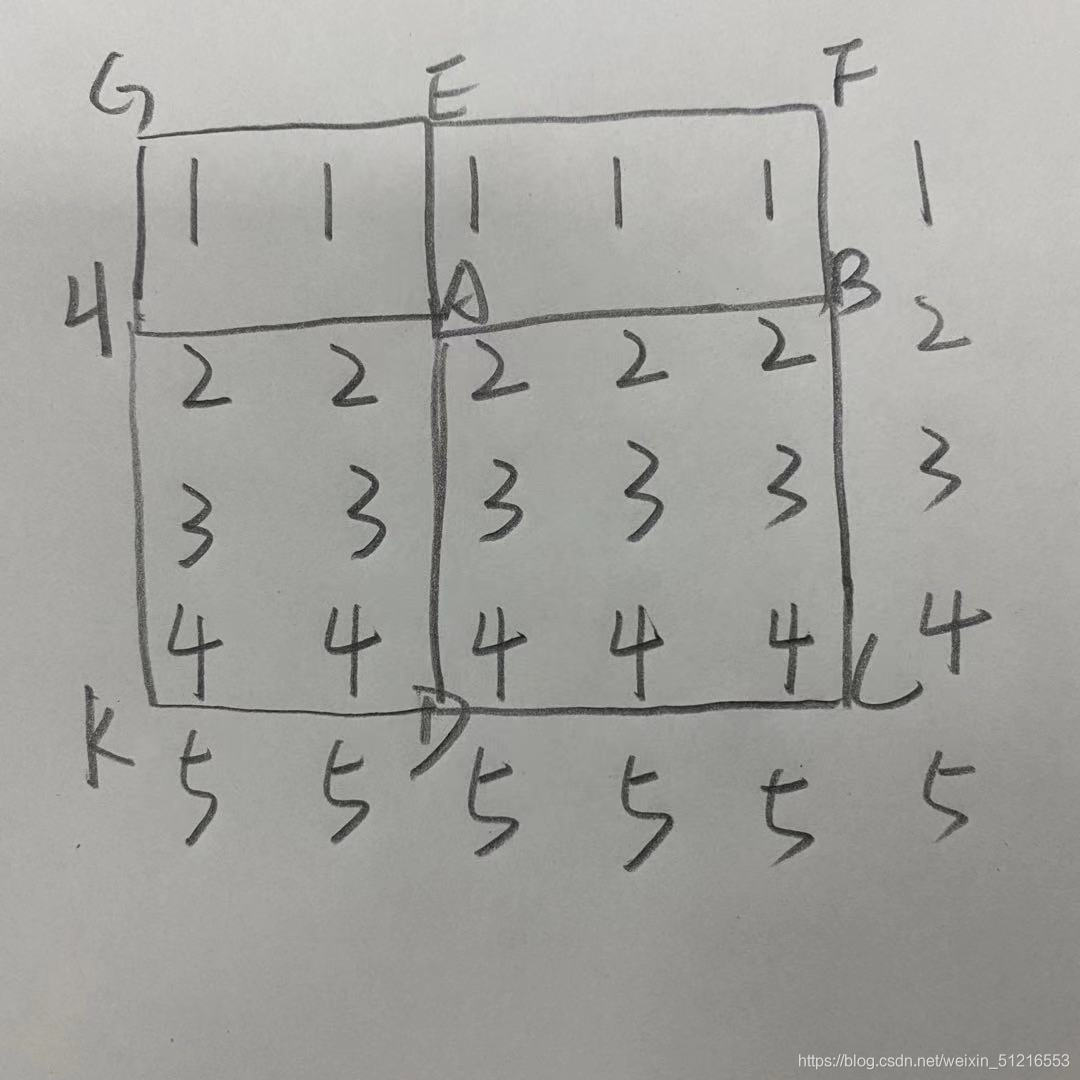 G E F
1 1 1 1 1 1
H A B
2 2 2 2 2 2
3 3 3 3 3 3
4 4 4 4 4 4
K D C
5 5 5 5 5 5
https://blog.csdn.net/weixin_51216553